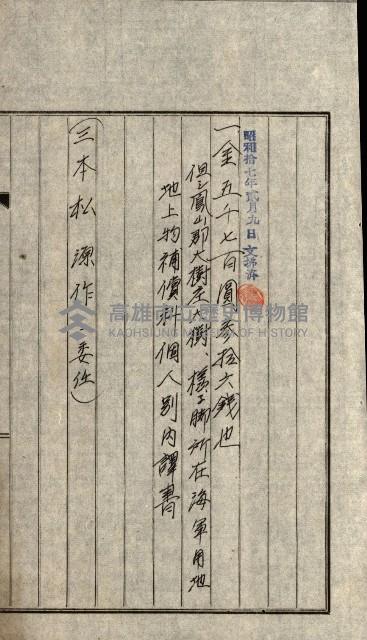 昭和拾七年貳月九日 支拂濟
一金五千七百圓叄拾六錢也
但シ鳳山郡大樹庄大樹、檨子脚所在海軍用地
地上物補償料個人別內譯書
(三本松源作ニ委任)
高雄市立歷史博物館
KAOHSIUNG MUSEUM OF HISTORY